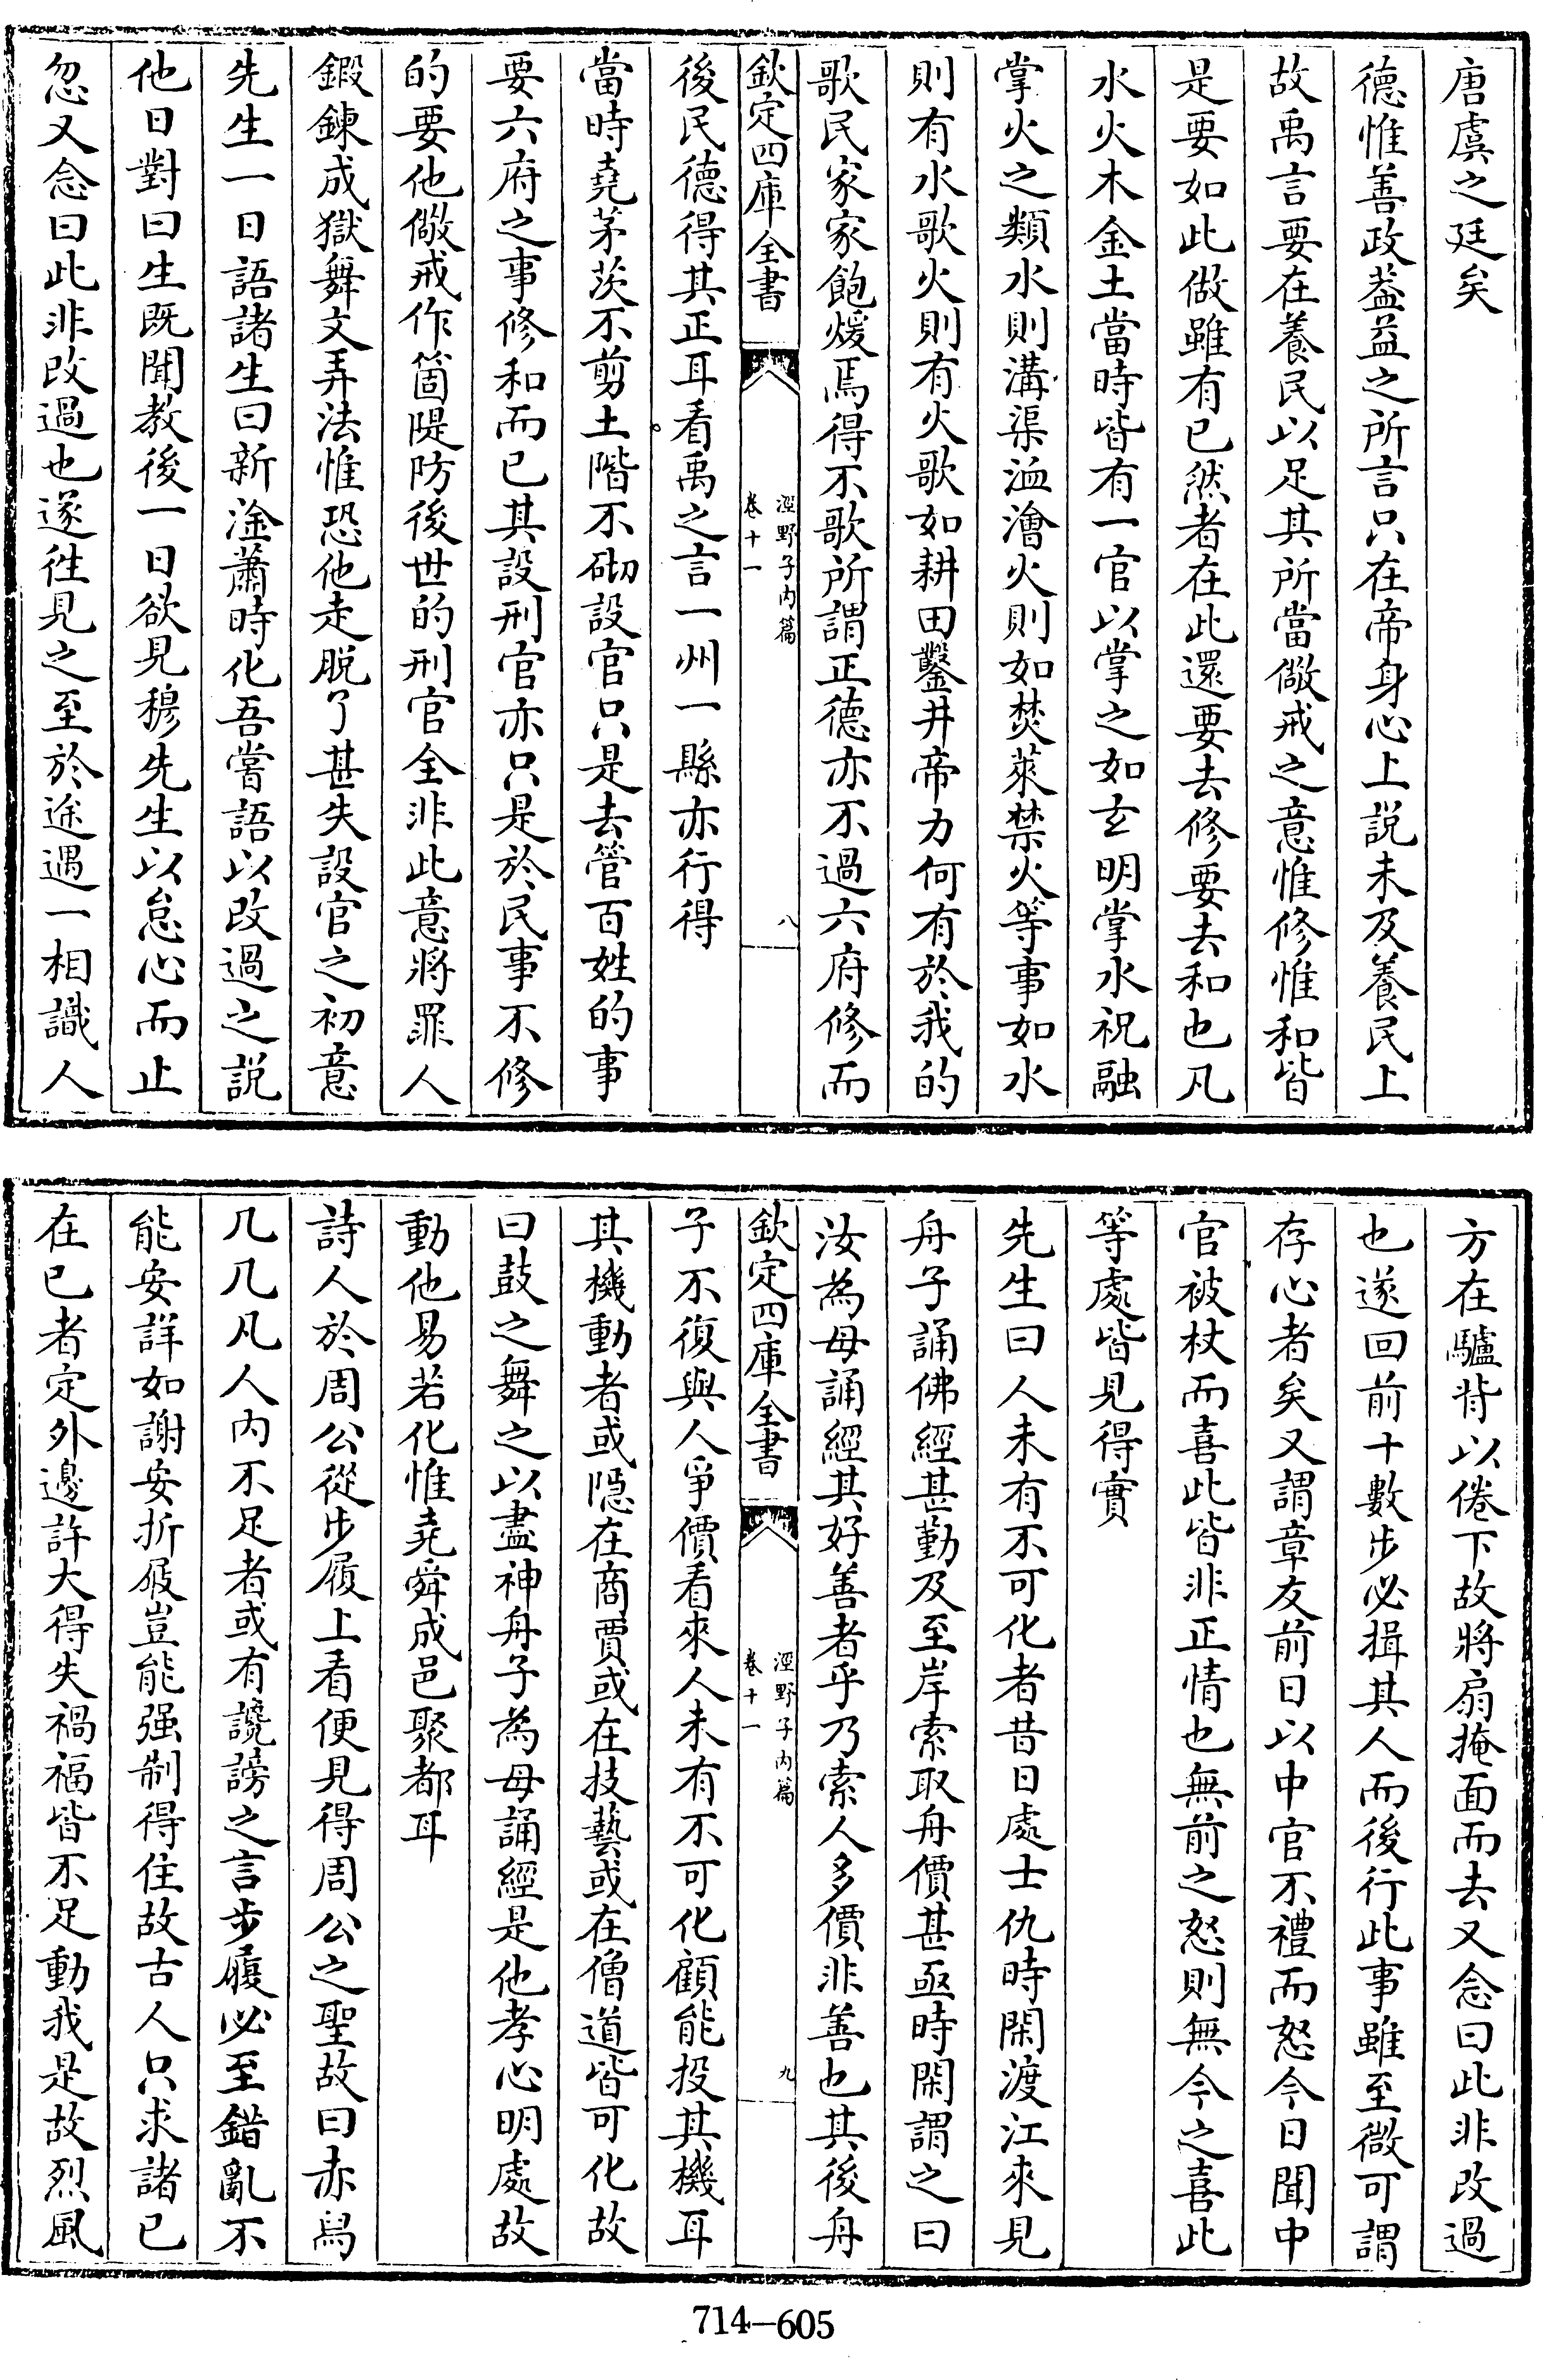 唐虞之廷矣
德惟善政葢益之所言只在帝身心上說未及養民上
故禹言要在養民以足其所當儆戒之意惟修惟和皆
是要如此做雖有已然者在此還要去修要去和也凡
水火木金土當時皆有一官以掌之如玄明掌水祝融
掌火之類水則溝渠洫澮火則如焚萊禁火等事如水
則有水歌火則有火歌如耕田鑿井帝力何有於我的
歌民家家飽煖焉得不歌所謂正德亦不過六府修而
欽定四庫全書
涇野子內篇
卷十一
八
後民德得其正耳看禹之言一州一縣亦行得
當時堯茅茨不剪土階不砌設官只是去管百姓的事
要六府之事修和而已其設刑官亦只是於民事不修
的要他儆戒作箇隄防後世的刑官全非此意將罪人
鍛鍊成獄舞文弄法惟恐他走脫了甚失設官之初意
先生一日語諸生曰新淦蕭時化吾嘗語以改過之說
他日對曰生既聞教後一日欲見穆先生以怠心而止
忽又念曰此非改過也遂徃見之至於途遇一相識人
方在驢背以倦下故將扇掩面而去又念曰此非改過
也遂回前十數步必揖其人而後行此事雖至微可謂
存心者矣又謂章友前日以中官不禮而怒今日聞中
官被杖而喜此皆非正情也無前之怒則無今之喜此
等處皆見得實
先生曰人未有不可化者昔日處士仇時閑渡江來見
舟子誦佛經甚勤及至岸索取舟價甚亟時閑謂之曰
汝為母誦經其好善者乎乃索人多價非善也其後舟
欽定四庫全書
涇野子內篇
卷十一
九
子不復與人爭價看來人未有不可化顧能投其機耳
其機動者或隱在商賈或在技藝或在僧道皆可化故
曰鼓之舞之以盡神舟子為母誦經是他孝心明處故
動他易若化惟堯舜成邑聚都耳
詩人於周公從步履上看便見得周公之聖故曰赤舄
几几凡人內不足者或有讒謗之言步履必至錯亂不
能安詳如謝安折屐豈能强制得住故古人只求諸已
在已者定外邊許大得失禍福皆不足動我是故烈風
714—605